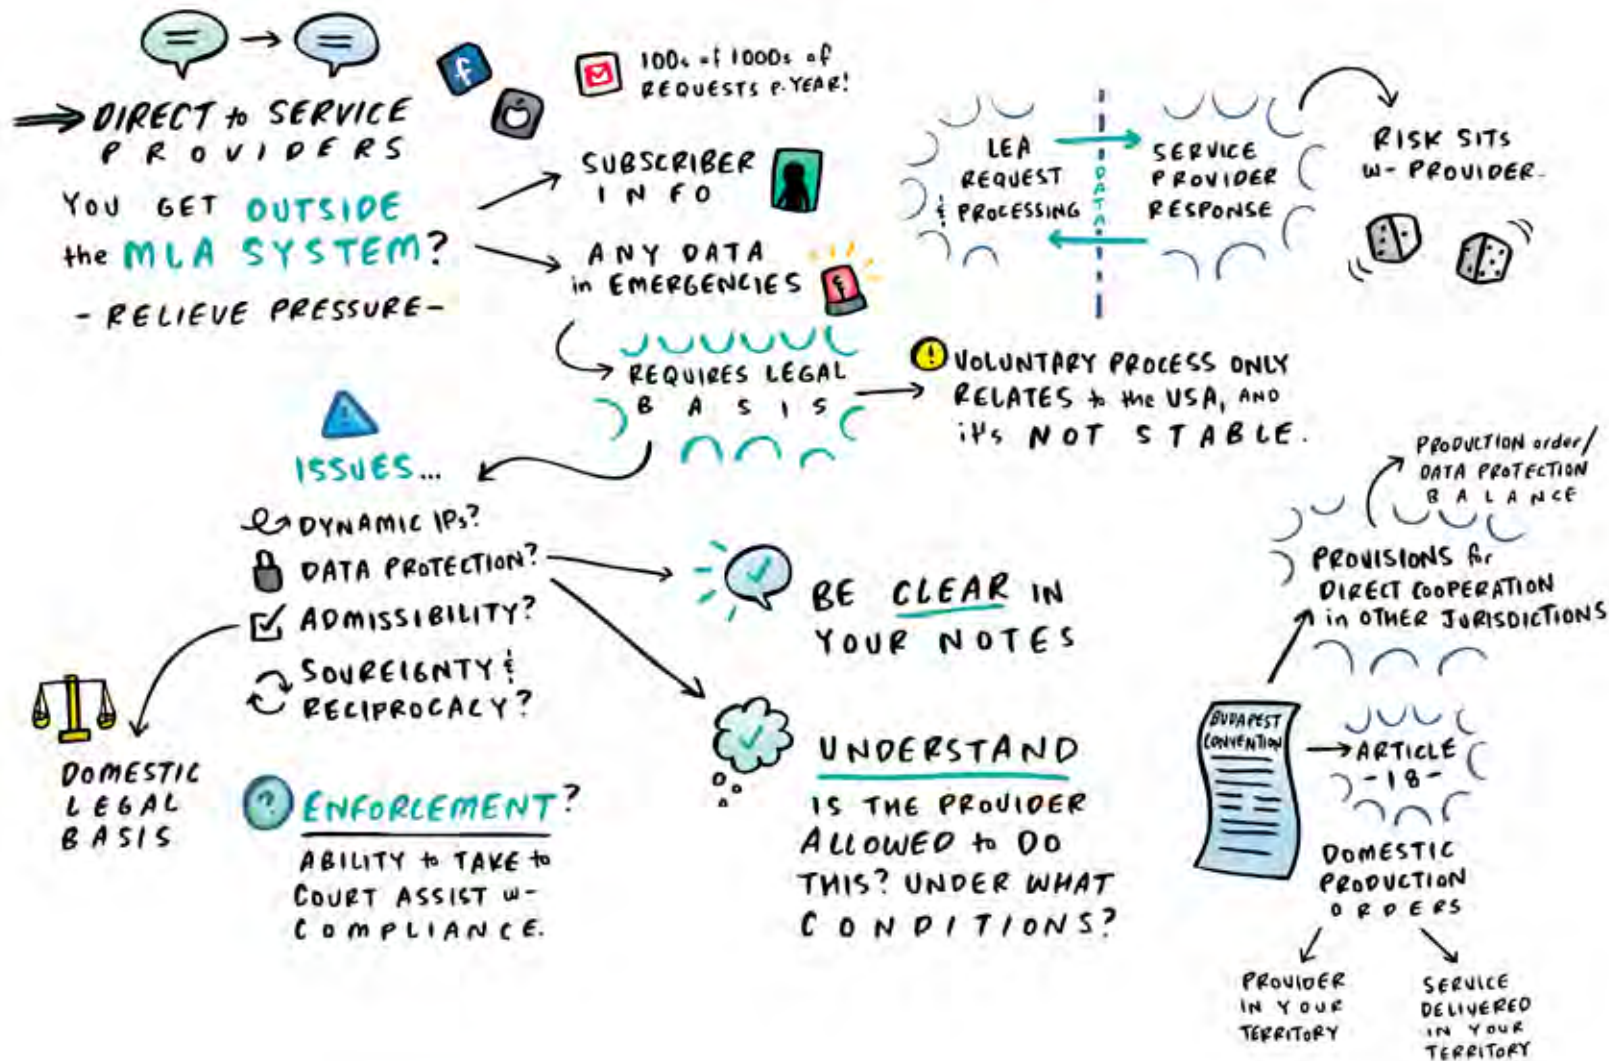 DIRECT to SERVICE
PROVIDERS
YOU GET OUTSIDE
the MLA SYSTEM?
- RELIEVE PRESSURE -
100s of 1000s of
REQUESTS P.YEAR!
SUBSCRIBER
INFO
ANY DATA
in EMERGENCIES
REQUIRES LEGAL
BASIS
LEA
REQUEST
& PROCESSING
DATA
SERVICE
PROVIDER
RESPONSE
RISK SITS
w- PROVIDER.
VOLUNTARY PROCESS ONLY
RELATES to the USA, AND
it's NOT STABLE.
ISSUES...
DYNAMIC IPs?
DATA PROTECTION?
ADMISSIBILITY?
SOUREIGNTY &
RECIPROCACY?
DOMESTIC
LEGAL
BASIS
? ENFORCEMENT?
ABILITY to TAKE to
COURT ASSIST w-
COMPLIANCE.
BE CLEAR IN
YOUR NOTES
UNDERSTAND
IS THE PROVIDER
ALLOWED to DO
THIS? UNDER WHAT
CONDITIONS?
PRODUCTION order/
DATA PROTECTION
BALANCE
PROVISIONS for
DIRECT COOPERATION
in OTHER JURISDICTIONS
BUDAPEST
CONVENTION
ARTICLE
-18-
DOMESTIC
PRODUCTION
ORDERS
PROVIDER
IN YOUR
TERRITORY
SERVICE
DELIVERED
IN YOUR
TERRITORY